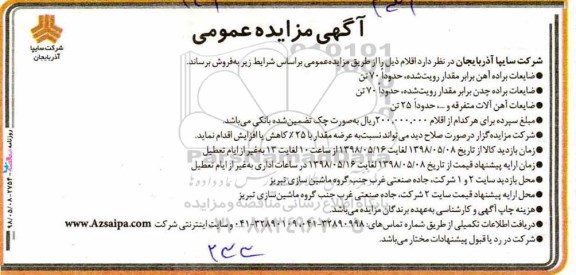 آگهی مزایده عمومی
شرکت سایپا
آذربایجان
شرکت سایپا آذربایجان در نظر دارد اقلام ذیل را از طریق مزایده عمومی براساس شرایط زیر به‌فروش برساند.
● ضایعات براده آهن برابر مقدار رویت‌شده، حدوداً ۷۰ تن
● ضایعات براده چدن برابر مقدار رویت‌شده، حدوداً ۷۰ تن
● ضایعات آهن آلات متفرقه و ...، حدوداً ۲۵ تن
مبلغ سپرده برای هر کدام از اقلام ۲۰۰,۰۰۰,۰۰۰ ریال به‌صورت چک تضمین‌شده بانکی می‌باشد.
شرکت مزایده‌گزار در صورت صلاح دید می‌تواند نسبت به عرضه مقدار با ۲۵٪ کاهش یا افزایش اقدام نماید.
زمان بازدید کالا از تاریخ ۱۳۹۸/۰۵/۰۸ لغایت ۱۳۹۸/۰۵/۱۶ از ساعت ۱۰ لغایت ۱۳ به‌غیر از ایام تعطیل
زمان ارایه پیشنهاد قیمت از تاریخ ۱۳۹۸/۰۵/۰۸ لغایت ۱۳۹۸/۰۵/۱۶ در ساعات اداری به‌غیر از ایام تعطیل
● محل بازدید سایت ۲ و ۱ شرکت، جاده صنعتی غرب جنب گروه ماشین سازی تبریز
● محل ارایه پیشنهاد قیمت سایت ۲ شرکت، جاده صنعتی غرب جنب گروه ماشین سازی تبریز
● هزینه چاپ آگهی و کارشناسی به‌عهده برندگان مزایده می‌باشد.
● دریافت اطلاعات تکمیلی از طریق شماره تماس‌های: ۰۴۱-۳۲۸۹۰۹۹۸ و ۰۴۱-۳۲۸۹۰۱۰۹ و سایت اینترنتی شرکت www.Azsaipa.com
● شرکت در رد یا قبول پیشنهادات مختار می‌باشد.